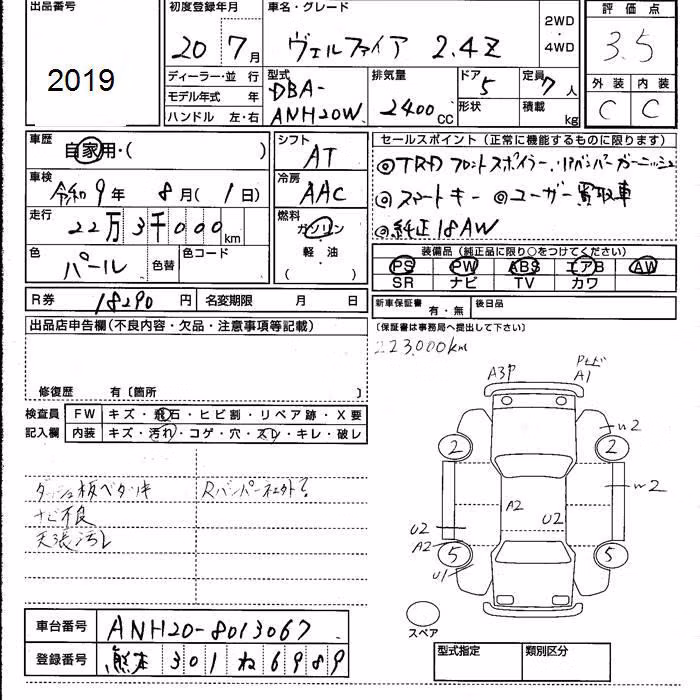 出品番号
2019
初度登録年月
20 7月
車名・グレード
ヴェルファイア 2.4Z
2WD
・
4WD
評価点
3.5
外装 内装
C C
ディーラー・並 行
モデル年式 年
ハンドル 左・右
型式
DBA-
ANH20W
排気量
2400 CC
ドア 5
形状
定員 7人
積載 kg
車歴
自家用・( )
車検
令和9年 8月(1日)
走行
22万3千000km
色
パール
色替
色コード
シフト
AT
冷房
AAC
燃料
ガソリン
・
軽 油
( ・ )
セールスポイント(正常に機能するものに限ります)
◎TRDフロントスポイラー、リアバンパーガーニッシュ
◎スマートキー ◎ユーザー買取車
◎純正18AW
装備品(純正品に限り○をつけてください)
PS PW ABS エアB AW
SR ナビ TV カワ
R券 18290 円
名変期限 月 日
新車保証書 有・無
後日品
出品店申告欄(不良内容・欠品・注意事項等記載)
(保証書は事務局へ提出して下さい)
223,000km
修復歴 有〔箇所 〕
検査員 FW キズ・飛石・ヒビ割・リペア跡・X要
記入欄 内装 キズ・汚れ・コゲ・穴・スレ・キレ・破レ
ダッシュ板ベタツキ
ナビ不良
天張汚レ
A3P
A1
U2
2 2
W2
A2
U2
U2
A2
5 5
U1
スペア
車台番号 ANH20-8013067
登録番号 熊本 301 ね 6989
型式指定 類別区分